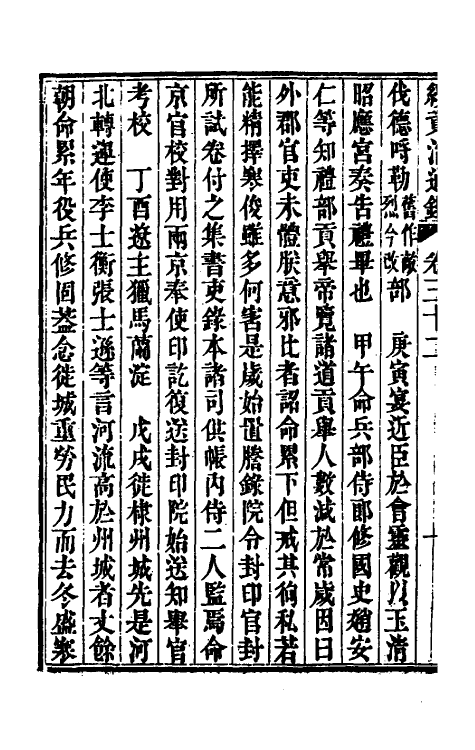 續資治通鑑 卷三十二
伐德呼勒舊作敵烈今改部　庚寅宴近臣於會靈觀以玉清
昭應宮奏告禮畢也　甲午命兵部侍郎修國史趙安
仁等知禮部貢舉帝覽諸道貢舉人數減於常歲因曰
外郡官吏未體朕意邪比者詔命累下但戒其徇私若
能精擇寒俊雖多何害是歲始置謄錄院令封印官封
所試卷付之集書吏錄本諸司供帳內侍二人監焉命
京官校對用兩京奉使印訖復送封印院始送知舉官
考校　丁酉遼主獵馬蘭淀　戊戌徙棣州城先是河
北轉運使李士衡張士遜等言河流高於州城者丈餘
朝命累年役兵修固蓋念徙城重勞民力而去冬盛寒